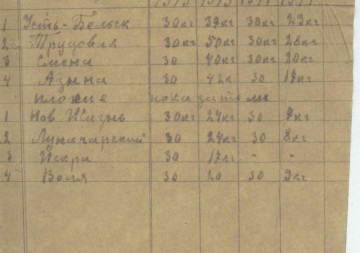 1 Усть-Бельск 30кг 39кг 30кг 23кг
2 Трудовик 30кг 50кг 30кг 26кг
3 Смена 30 40кг 30кг 20кг
4 30 42к 30 19кг
плохие показатели
1 Нов Жизнь 30кг 24кг 30 9кг
2 Луначарский 30 24кг 30 8кг
3 Искра 30 17кг - -
4 Воля 30 20 30 9кг